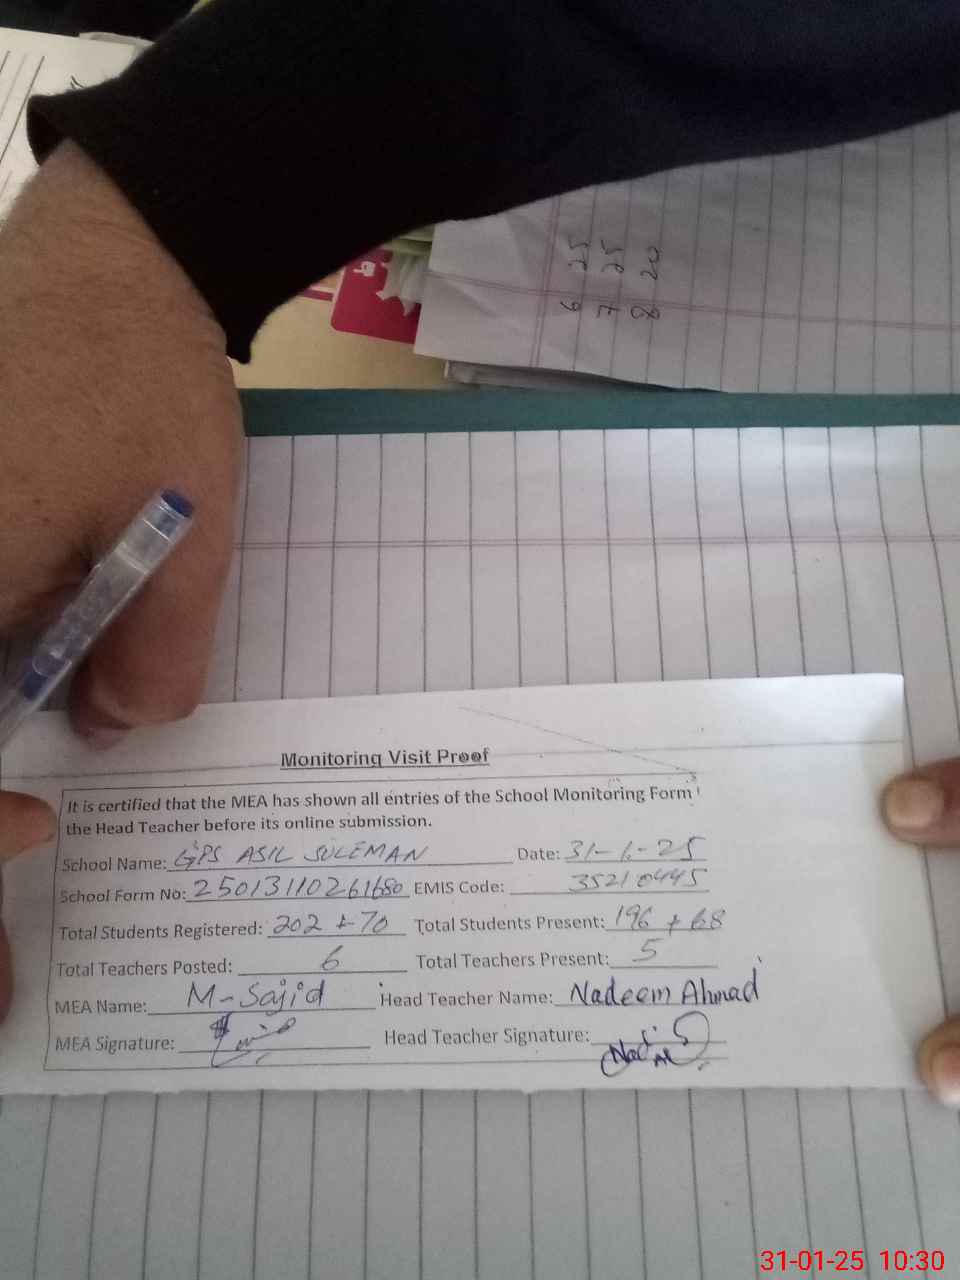 6 25
7 25
8 20
Monitoring Visit Proof
It is certified that the MEA has shown all entries of the School Monitoring Form
the Head Teacher before its online submission.
School Name: GPS ASIL SULEMAN Date: 31-1-25
School Form No: 25013110261680 EMIS Code: 35210445
Total Students Registered: 202 + 70 Total Students Present: 196 + 68
Total Teachers Posted: 6 Total Teachers Present: 5
MEA Name: M-Sajid Head Teacher Name: Nadeem Ahmad
MEA Signature: Head Teacher Signature:
31-01-25 10:30